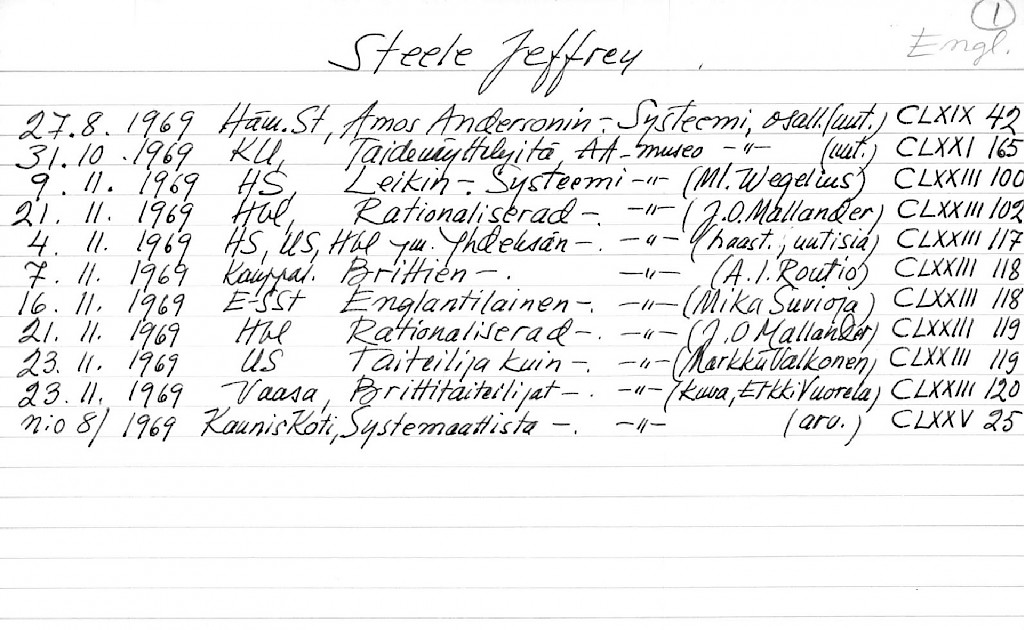 1
Engl.
Steele Jeffrey
27.8. 1969 Häm.St, Amos Andersonin -. Systeemi, osall.(uut.) CLXIX 42
31.10.1969 KU, Taidenäyttelyitä, AA-museo -"- (uut.) CLXXI 165
9. 11. 1969 HS, Leikin -. Systeemi -"- (Ml. Wegelius) CLXXIII 100
21. 11. 1969 Hbl, Rationaliserad -. -"- (J.O.Mallander) CLXXIII 102
4. 11. 1969 HS, US, Hbl ym. Yhdeksän -. -"- (haast., uutisia) CLXXIII 117
7. 11. 1969 Kauppal. Brittien -. -"- (A.I.Routio) CLXXIII 118
16. 11. 1969 E-SSt Englantilainen -. -"- (Mika Suvioja) CLXXIII 118
21. 11. 1969 Hbl Rationaliserad -. -"- (J.O Mallander) CLXXIII 119
23. 11. 1969 US Taiteilija kuin -. -"- (Markku Valkonen) CLXXIII 119
23. 11. 1969 Vaasa, Brittitaiteilijat -. -"- (kuva, Erkki Vuorela) CLXXIII 120
n:o 8/ 1969 Kaunis Koti, Systemaattista -. -"- (arv.) CLXXV 25